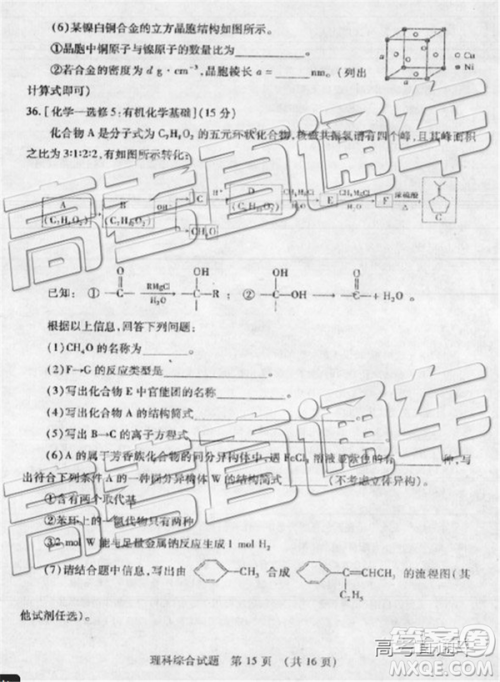 (6)某镍白铜合金的立方晶胞结构如图所示。
①晶胞中铜原子与镍原子的数量比为
②若合金的密度为 d g·cm⁻³,晶胞棱长 a = nm。(列出
计算式即可)
a a a
Cu
Ni
36.[化学—选修5:有机化学基础](15分)
化合物A是分子式为 的五元环状化合物, 核磁共振氢谱有四个峰,且其峰面积
之比为3:1:2:2,有如图所示转化:
A
B
C
D
E
F
浓硫酸
G
CH₃MgCl
H₂O
CH₄O
已知: ① RMgCl H₂O OH R ; ② OH OH + H₂O 。
根据以上信息,回答下列问题:
(1)CH₄O的名称为 。
(2)F→G的反应类型是 。
(3)写出化合物E中官能团的名称 。
(4)写出化合物A的结构简式
(5)写出B→C的离子方程式
(6)A的属于芳香族化合物的同分异构体中,遇FeCl₃溶液显紫色的有 种,写
出符合下列条件A的一种同分异构体W的结构简式 (不考虑立体异构)。
①含有两个取代基
②苯环上的一氯代物只有两种
③2 mol W能与足量金属钠反应生成1 mol H₂
(7)请结合题中信息,写出由 CH₃ 合成 C=CHCH₃ C₂H₅ 的流程图(其
他试剂任选)。
理科综合试题 第15页 (共16页)
高考直通车
高考直通车
高考直通车